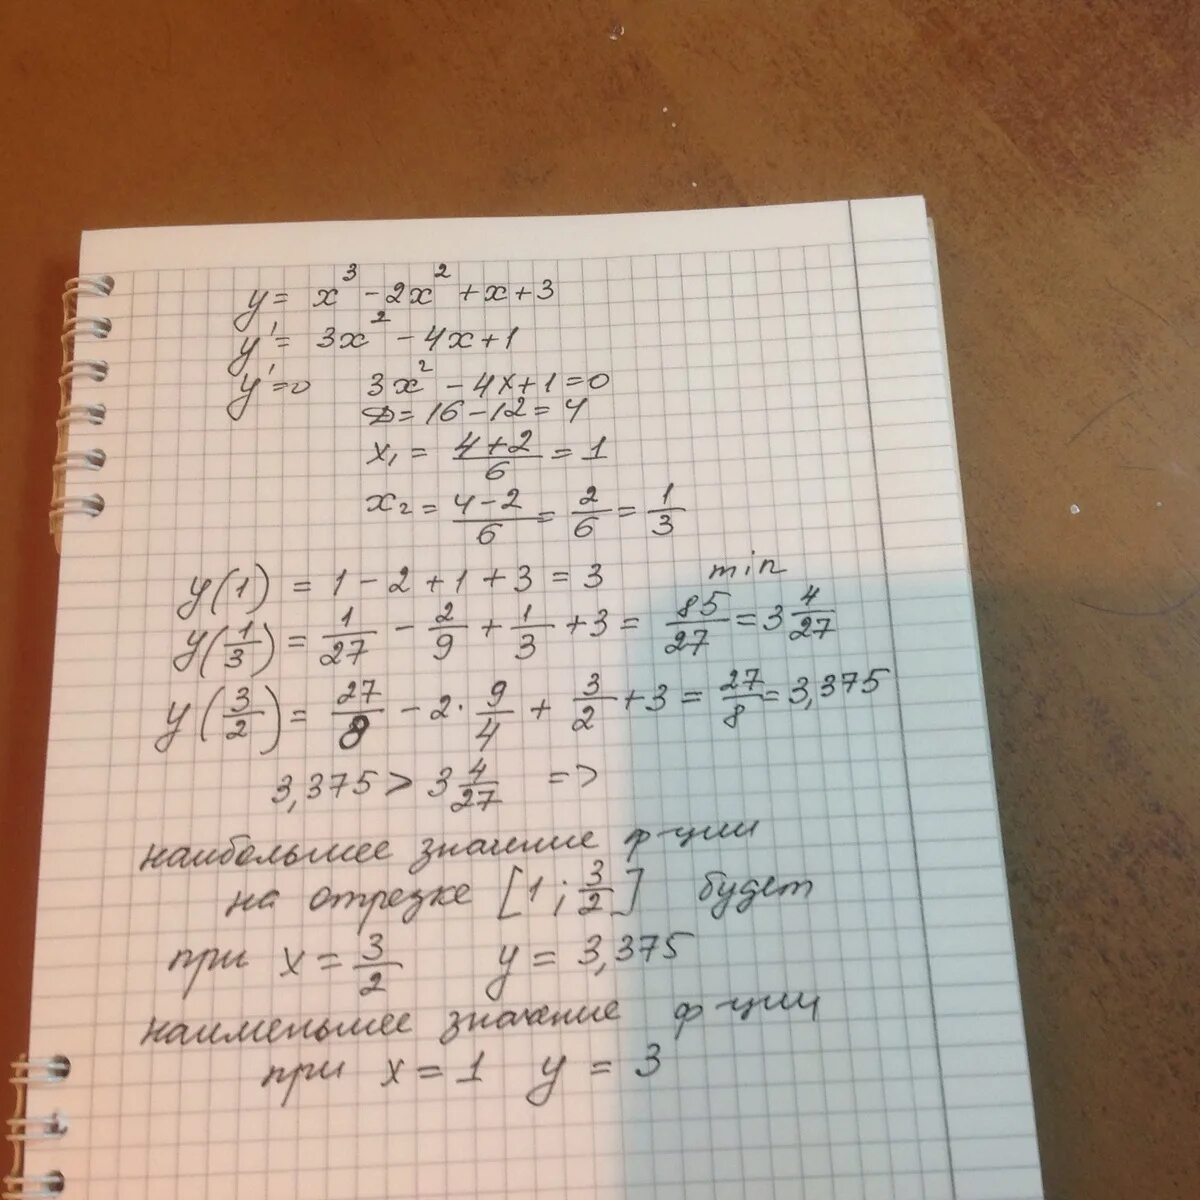 y = x³ - 2x² + x + 3
y' = 3x² - 4x + 1
y' = 0 3x² - 4x + 1 = 0
D = 16 - 12 = 4
x₁ = (4+2)/6 = 1
x₂ = (4-2)/6 = 2/6 = 1/3
y(1) = 1 - 2 + 1 + 3 = 3 min
y(1/3) = 1/27 - 2/9 + 1/3 + 3 = 85/27 = 3 4/27
y(3/2) = 27/8 - 2 · 9/4 + 3/2 + 3 = 27/8 = 3,375
3,375 > 3 4/27 =>
наибольшее значение ф-ции
на отрезке [1; 3/2] будет
при x = 3/2 y = 3,375
наименьшее значение ф-ции
при x = 1 y = 3